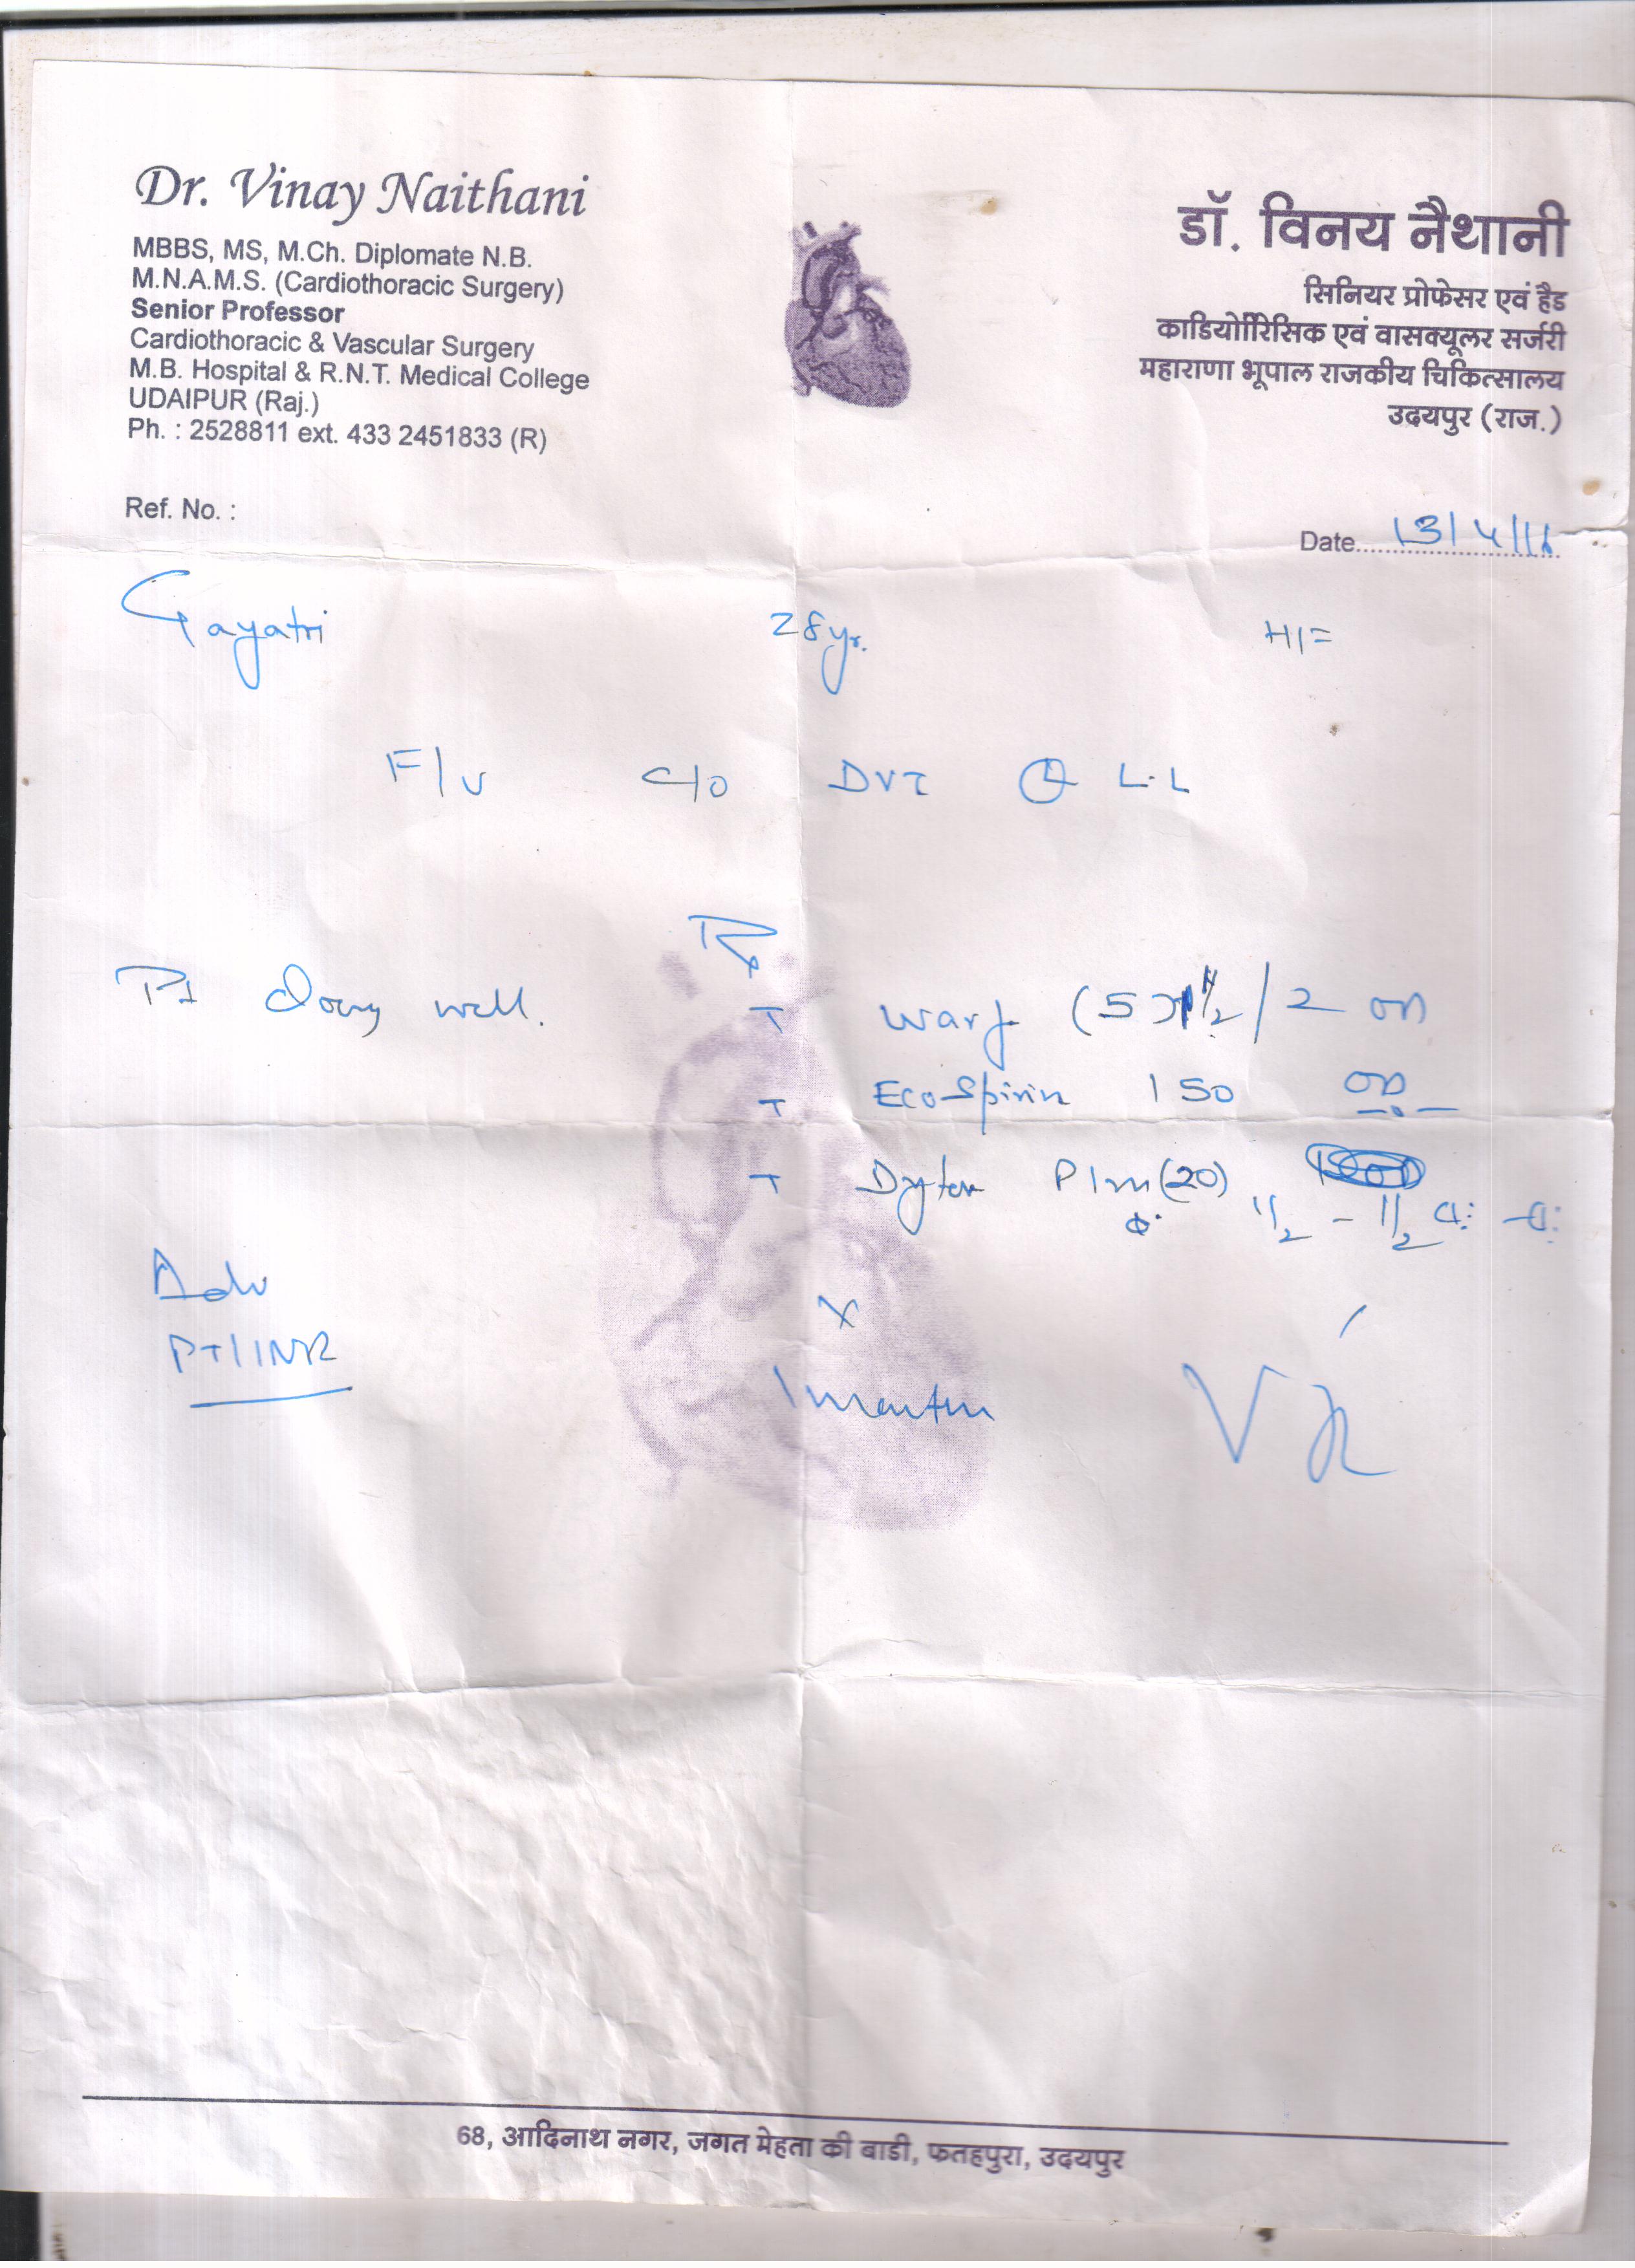 Dr. Vinay Naithani
MBBS, MS, M.Ch. Diplomate N.B.
M.N.A.M.S. (Cardiothoracic Surgery)
Senior Professor
Cardiothoracic & Vascular Surgery
M.B. Hospital & R.N.T. Medical College
UDAIPUR (Raj.)
Ph. : 2528811 ext. 433 2451833 (R)
डॉ. विनय नैथानी
सिनियर प्रोफेसर एवं हैड
काडियोरिसिक एवं वासक्यूलर सर्जरी
महाराणा भूपाल राजकीय चिकित्सालय
उदयपुर (राज.)
Ref. No. :
Date 13/4/16
Gayatri 28yr.
F/U C/O DVT L L.L
Rx
Pt doing well.
T Warf (5) 1 1/2 / 2 OD
T Ecosprin 150 OD
T Dytor Plus (20)
1/2 - 1/2
Adv
PT/INR
x
1 month
68, आदिनाथ नगर, जगत मेहता की बाडी, फतहपुरा, उदयपुर